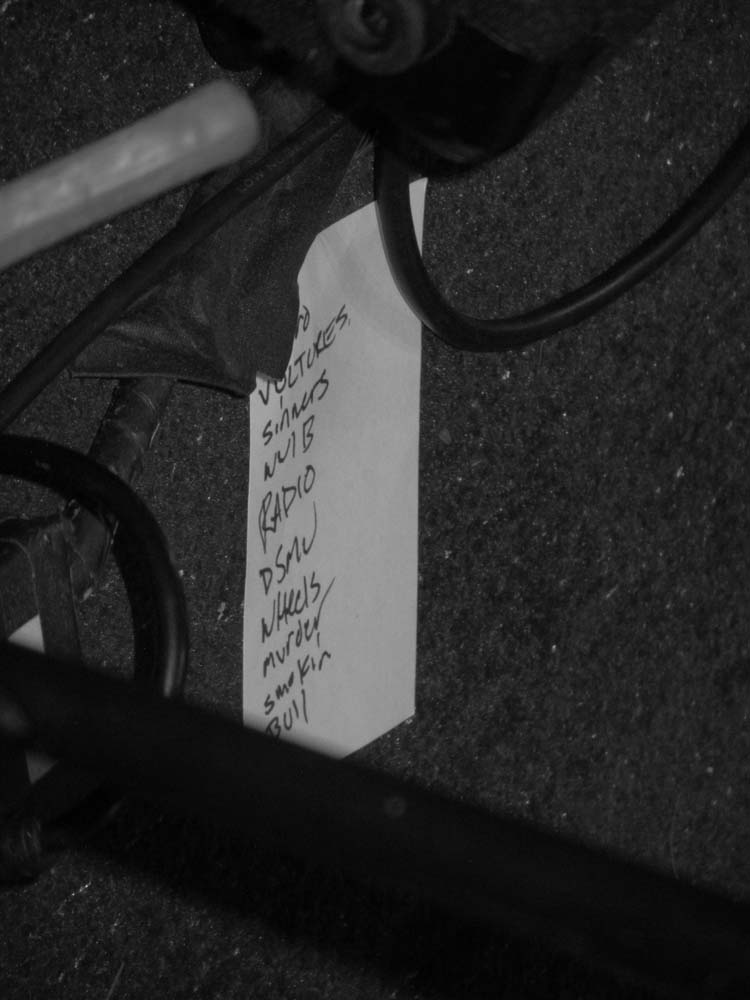 VULTURES
sinners
NUIB
RADIO
DSMU
WHeels
murder
smokin
BUll